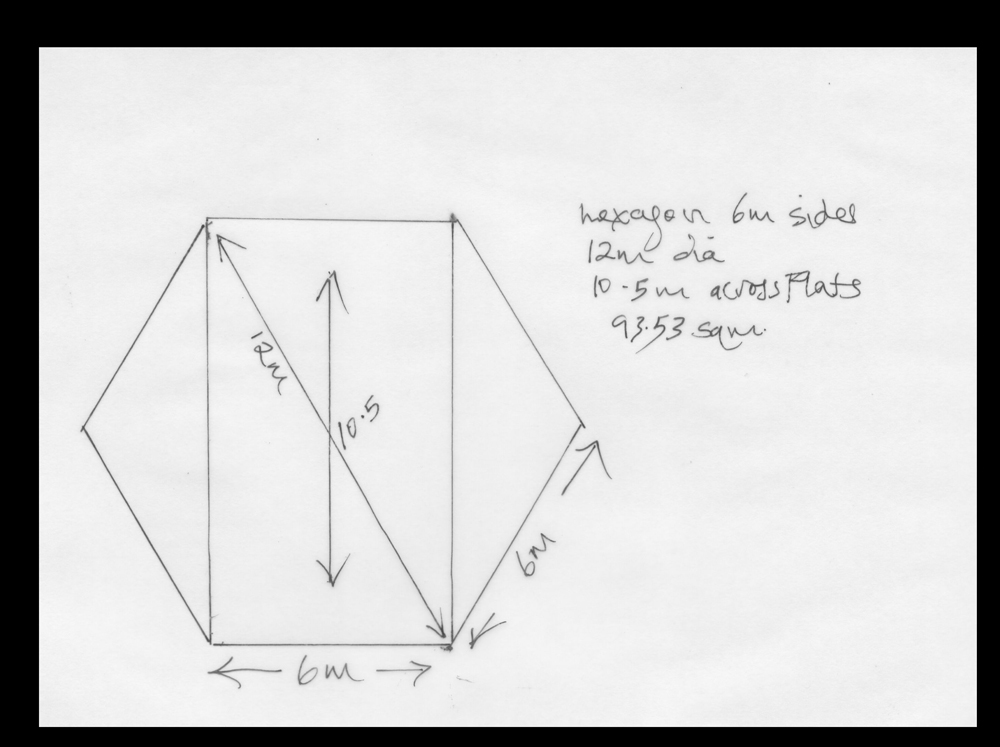 hexagon 6m sides
12m dia
10.5m across Flats
93.53 sqm.
12m
10.5
6m
6m